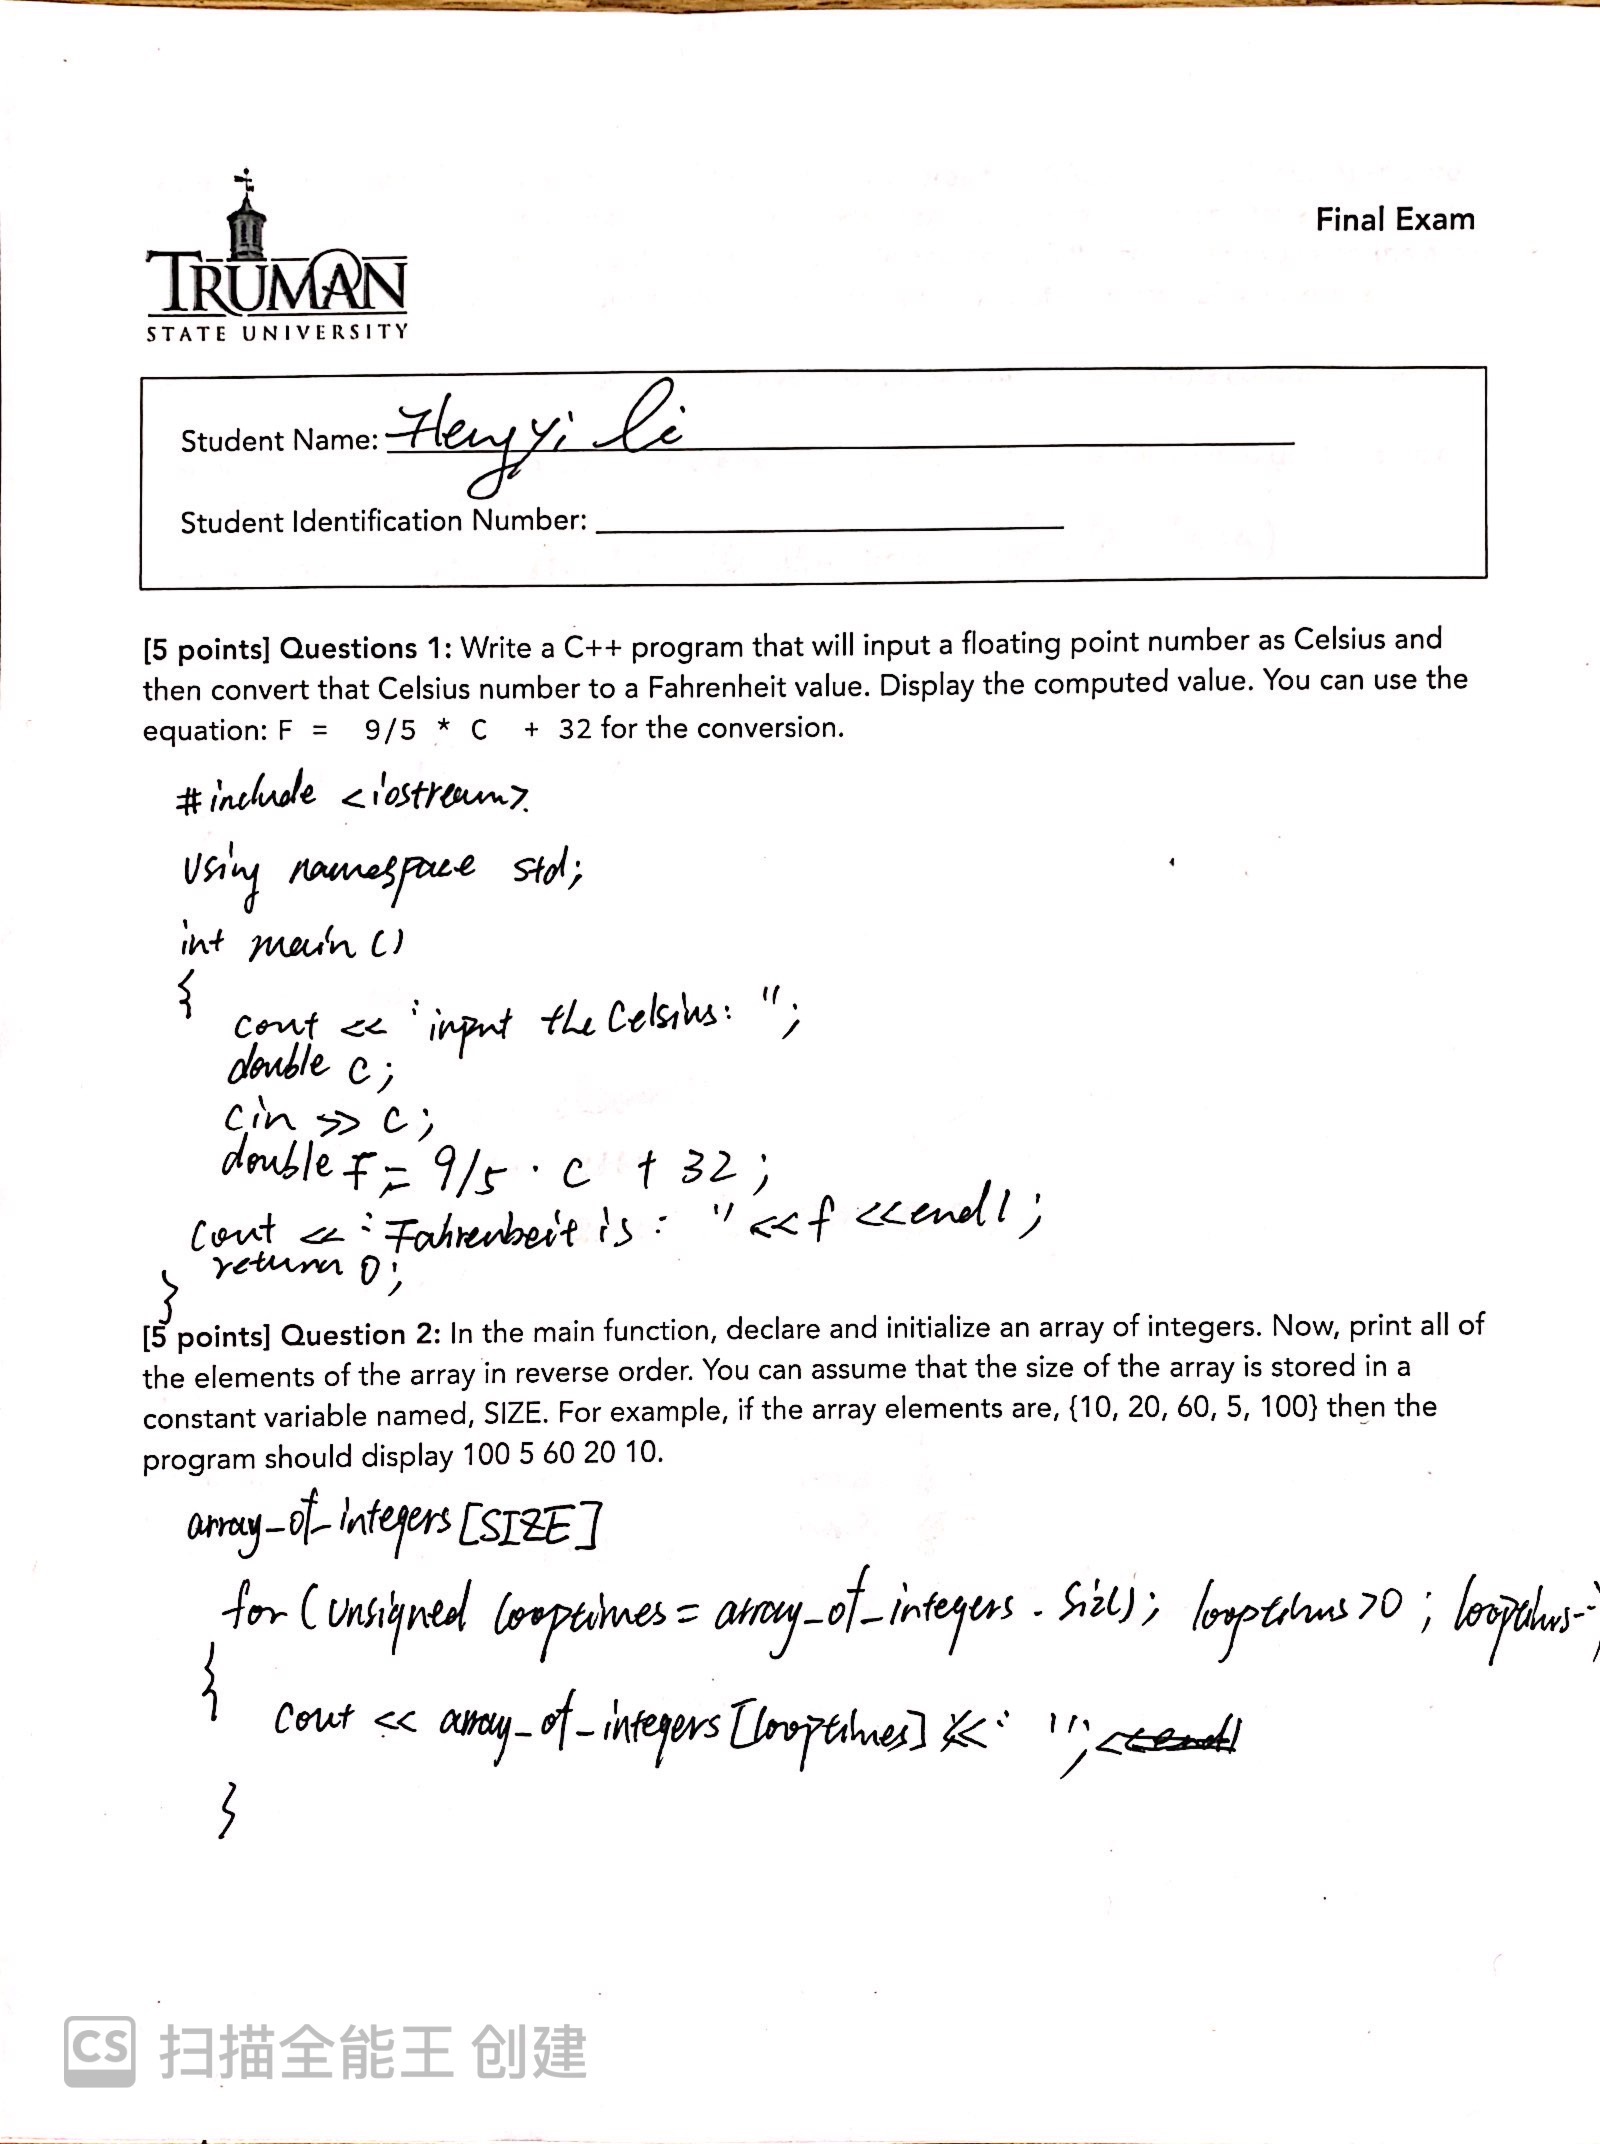 TRUMAN
STATE UNIVERSITY
Final Exam
Student Name: Hengyi Li
Student Identification Number:
[5 points] Questions 1: Write a C++ program that will input a floating point number as Celsius and
then convert that Celsius number to a Fahrenheit value. Display the computed value. You can use the
equation: F = 9/5 * C + 32 for the conversion.
#include <iostream>
Using namespace std;
int main ()
{
cout << "input the Celsius: ";
double c;
cin >> c;
double F = 9/5 · c + 32;
cout << "Fahrenheit is: " << f << endl;
return 0;
}
[5 points] Question 2: In the main function, declare and initialize an array of integers. Now, print all of
the elements of the array in reverse order. You can assume that the size of the array is stored in a
constant variable named, SIZE. For example, if the array elements are, {10, 20, 60, 5, 100} then the
program should display 100 5 60 20 10.
array_of_integers [SIZE]
for (unsigned looptimes = array_of_integers . Size(); looptimes >0 ; looptimes--)
{
cout << array_of_integers [looptimes] << " "; <<endl
}
CS 扫描全能王 创建